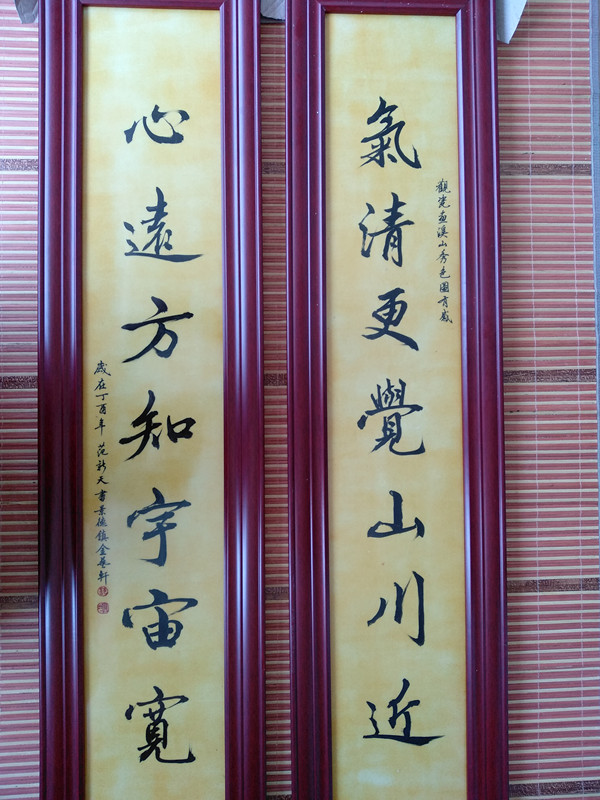 氣清更覺山川近
觀瓷畫溪山秀色圖有感
心遠方知宇宙寬
歲在丁酉年 范新天書景德鎮金藝軒